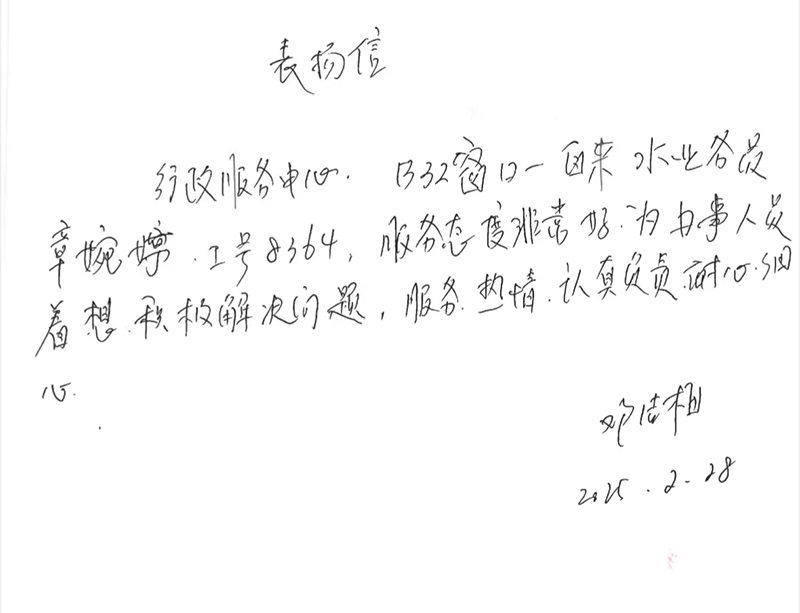 表扬信
行政服务中心. B32窗口一自来水业务员
章婉婷.工号8364,服务态度非常好.为办事人员
着想.积极解决问题,服务.热情.认真负责.耐心.细
心.
2025.2.28